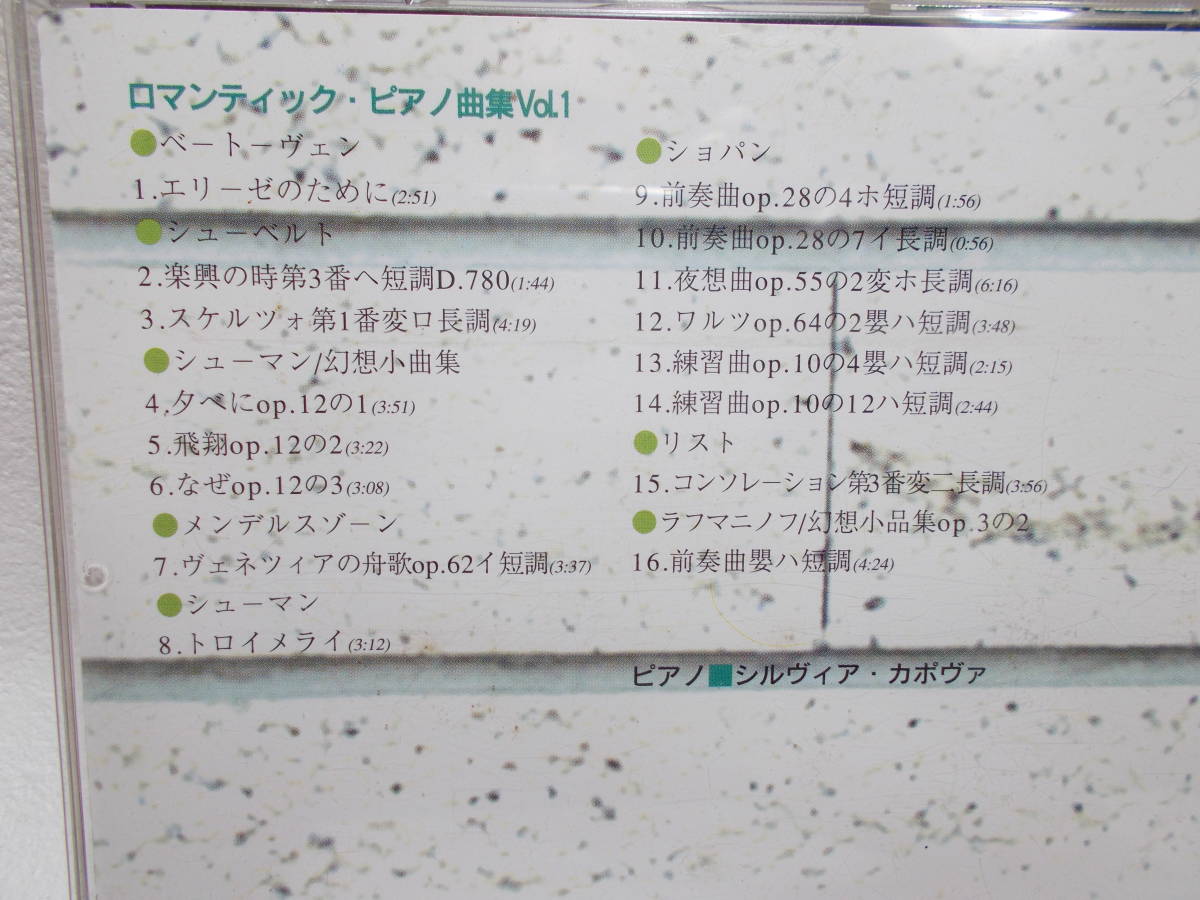 ロマンティック・ピアノ曲集Vol.1
●ベートーヴェン
1.エリーゼのために(2:51)
●シューベルト
2.楽興の時第3番ヘ短調D.780(1:44)
3.スケルツォ第1番変ロ長調(4:19)
●シューマン/幻想小曲集
4.夕べにop.12の1(3:51)
5.飛翔op.12の2(3:22)
6.なぜop.12の3(3:08)
●メンデルスゾーン
7.ヴェネツィアの舟歌op.62イ短調(3:37)
●シューマン
8.トロイメライ(3:12)
●ショパン
9.前奏曲op.28の4ホ短調(1:56)
10.前奏曲op.28の7イ長調(0:56)
11.夜想曲op.55の2変ホ長調(6:16)
12.ワルツop.64の2嬰ハ短調(3:48)
13.練習曲op.10の4嬰ハ短調(2:15)
14.練習曲op.10の12ハ短調(2:44)
●リスト
15.コンソレーション第3番変ニ長調(3:56)
●ラフマニノフ/幻想小品集op.3の2
16.前奏曲嬰ハ短調(4:24)
ピアノ■シルヴィア・カポヴァ